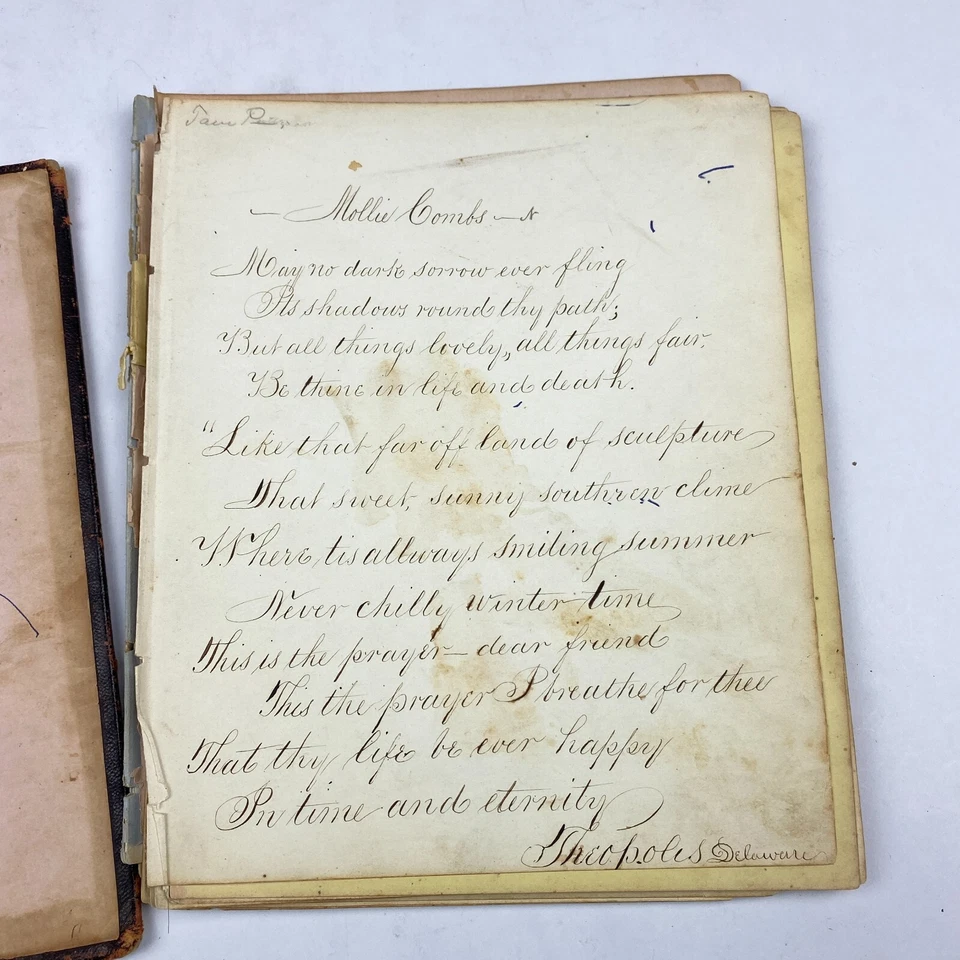 Mollie Combs
May no dark sorrow ever fling
Its shadows round thy path;
But all things lovely, all things fair.
Be thine in life and death.
"Like that far off land of sculpture
That sweet, sunny southren clime
Where tis allways smiling summer
Never chilly winter time
This is the prayer — dear friend
This the prayer I breathe for thee
That thy life be ever happy
In time and eternity
Theopolis Delaware